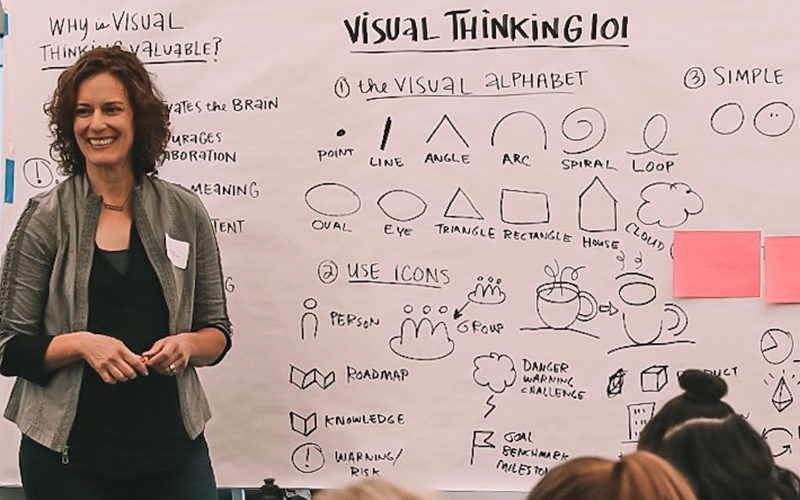 WHY is VISUAL
THINKING VALUABLE?
VATES the BRAIN
URAGES
ABORATION
MEANING
TENT
G
VISUAL THINKING 101
① the VISUAL ALPHABET
POINT LINE ANGLE ARC SPIRAL LOOP
OVAL EYE TRIANGLE RECTANGLE HOUSE CLOUD
② USE ICONS
PERSON GROUP
ROADMAP
DANGER
WARNING
CHALLENGE
KNOWLEDGE
WARNING/
RISK
GOAL
BENCHMARK
MILESTO
③ SIMPLE